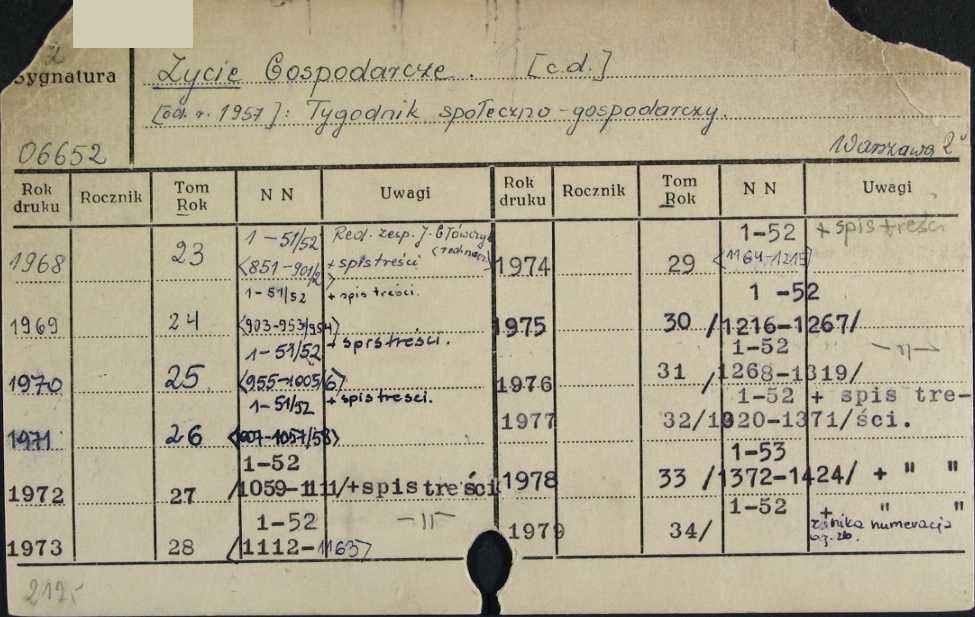 Sygnatura
Życie Gospodarcze. [c.d.]
[od. r. 1957]: Tygodnik społeczno-gospodarczy.
06652
Warszawa 2
Rok druku Rocznik Tom Rok N N Uwagi Rok druku Rocznik Tom Rok N N Uwagi
1-51/52 Red. zesp. J. Główczyk
1968 23 <851-901/2> + spis treści
1-51/52 + spis treści.
1969 24 <903-953/954>
1-51/52 + spis treści.
1970 25 <955-1005/6>
1-51/52 + spis treści.
1971 26 <907-1057/58>
1-52
1972 27 /1059-1111/+spis treści
1-52 -"-
1973 28 /1112-1163>
1-52 + spis treści
1974 29 <1164-1215>
1-52
1975 30 /1216-1267/
1-52 -"-
1976 31 /1268-1319/
1-52 + spis tre-
1977 32/1320-1371/ści.
1-53
1978 33 /1372-1424/ + " "
1-52 + " "
1979 34/
numeracja
212